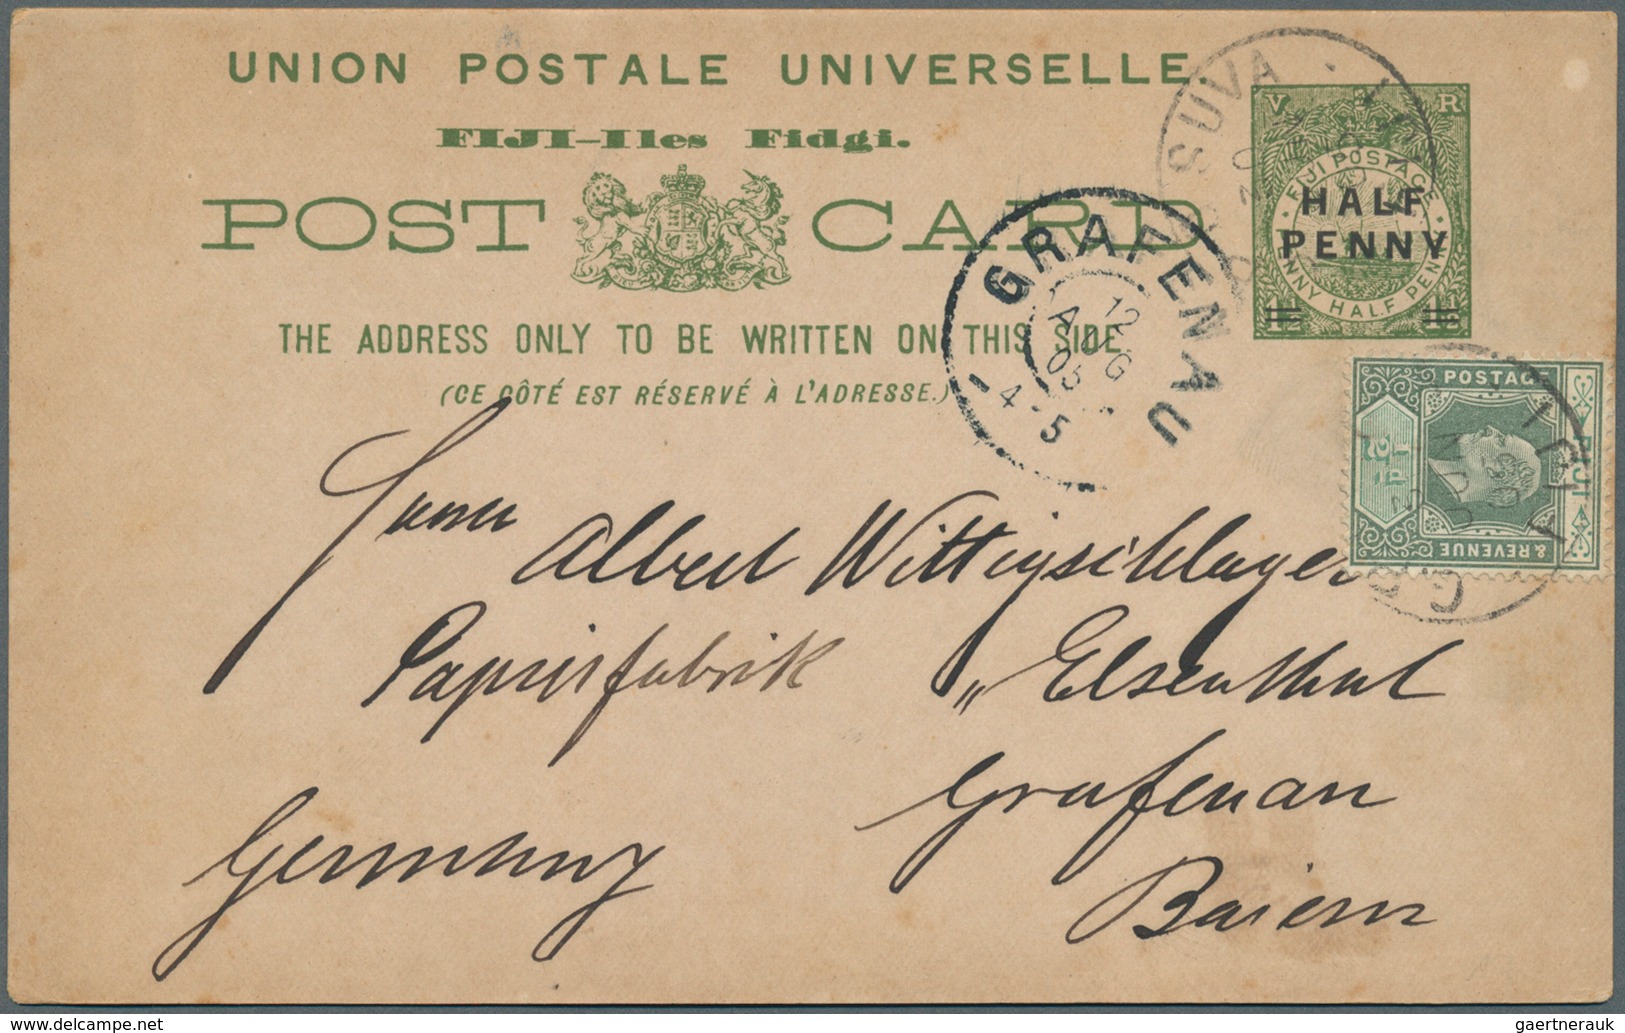 UNION POSTALE UNIVERSELLE.
FIJI–Iles Fidgi.
POST CARD
THE ADDRESS ONLY TO BE WRITTEN ON THIS SIDE
(CE CÔTÉ EST RÉSERVÉ À L'ADRESSE.)
SUVA
V R
FIJI POSTAGE
HALF
PENNY
PENNY HALF PENNY
GRAFENAU
12
AUG
05
4-5
POSTAGE
FIJI
& REVENUE
Herrn
Albert Wittinschlager
Papierfabrik „Elsenthal
Grafenau
Baiern
Germany
gaertnerauk